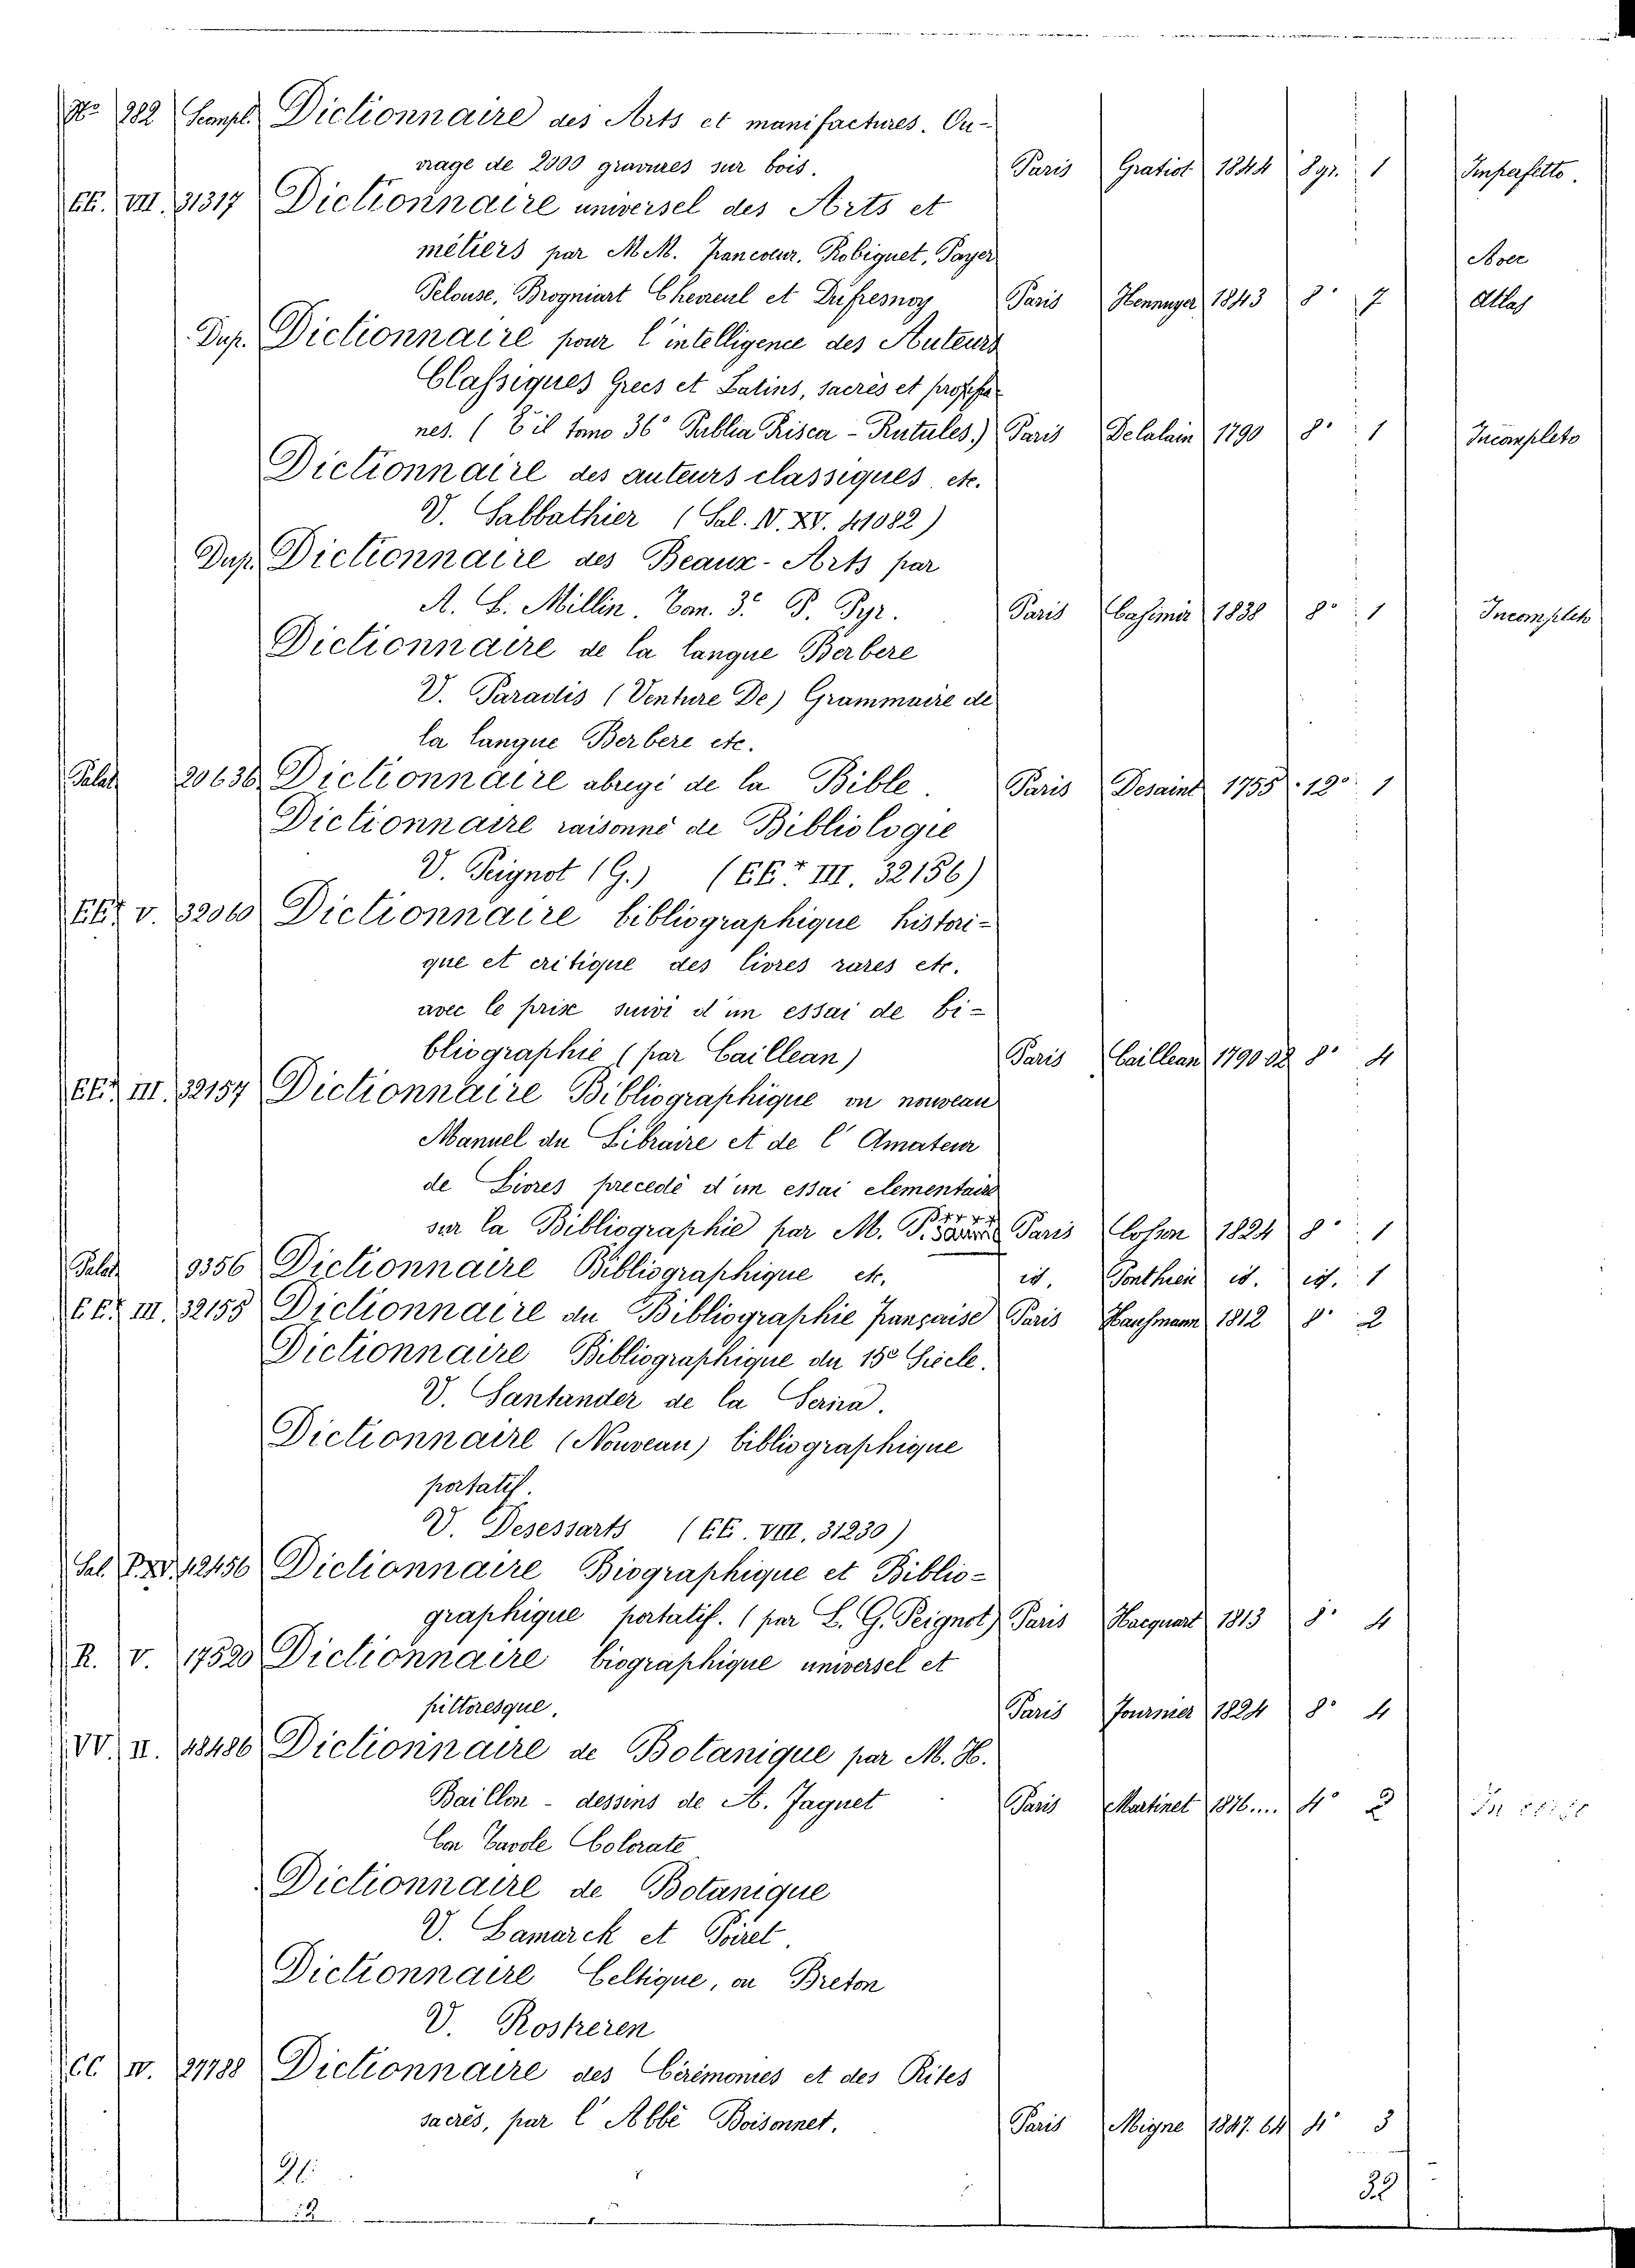 No 282 Scampl. Dictionnaire des Arts et manifactures. Ou-
vrage de 2000 gravures sur bois. Paris Gratiot 1844 8gr. 1 Imperfetto.
EE. VIII. 31317 Dictionnaire universel des Arts et
métiers par M.M. Francoeur, Robiquet, Payer
Pelouse, Brogniart Chevreul et Dufresnoy Paris Hennuyer 1843 8° 7 Atlas
Dup. Dictionnaire pour l'intelligence des Auteurs
Classiques Grecs et Latins, sacrés et propha-
nes. ( È il tomo 36° Publia Prisca - Rutules.) Paris Delalain 1790 8° 1 Incompleto
Dictionnaire des auteurs classiques etc.
V. Sabbathier (Sal. IV. XV. 41082)
Dup. Dictionnaire des Beaux-Arts par
A. L. Millin. Tom. 3.° P. Pyr. Paris Casimir 1838 8° 1 Incompleto
Dictionnaire de la langue Berbere
V. Paradis (Venture De) Grammaire de
la langue Berbere etc.
Palat. 20636 Dictionnaire abregé de la Bible. Paris Desaint 1755 12° 1
Dictionnaire raisonné de Bibliologie
V. Peignot (G.) (EE+ III. 32156)
EE+ V. 32060 Dictionnaire bibliographique histori-
que et critique des livres rares etc.
avec le prix suivi d'un essai de bi-
bliographie (par Cailleau) Paris Cailleau 1790 02 8° 4
EE+ III. 32157 Dictionnaire Bibliographique ou nouveau
Manuel du Libraire et de l'Amateur
de Livres precedé d'un essai elementaire
sur la Bibliographie par M. P. Paris 1824 8° 1
Palat. 9356 Dictionnaire Bibliographique etc. id. Ponthieu id. id. 1
EE+ III. 32155 Dictionnaire du Bibliographie française Paris Haufmann 1812 8° 2
Dictionnaire Bibliographique du 15e Siècle.
V. Santander de la Serna.
Dictionnaire (Nouveau) bibliographique
portatif.
V. Desessarts (EE. VIII. 31230)
Sal. P. XV. 42456 Dictionnaire Biographique et Biblio-
graphique portatif. (par L. G. Peignot) Paris Hacquart 1813 8° 4
R. V. 17520 Dictionnaire biographique universel et
pittoresque. Paris Fournier 1824 8° 4
VV. II. 48486 Dictionnaire de Botanique par M. H.
Baillon - dessins de A. Faguet Paris Martinet 1876.... 4° 2
Con Tavole Colorate
Dictionnaire de Botanique
V. Lamarck et Poiret.
Dictionnaire Celtique, ou Breton
V. Rostrenen
CC IV. 27788 Dictionnaire des Cérémonies et des Rites
sacrés, par l'Abbé Boisonnet. Paris Migne 1847.64 4° 3